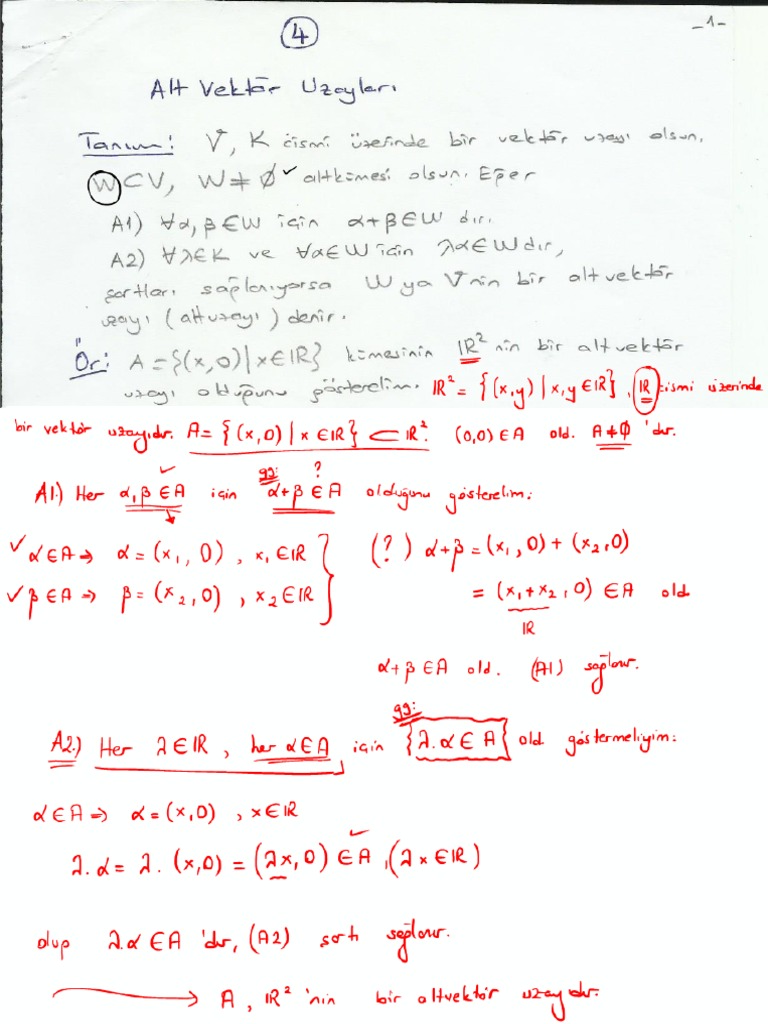 4
-1-
Alt Vektör Uzayları
Tanım: V, K cismi üzerinde bir vektör uzayı olsun.
W⊂V, W≠∅ ✓ altkümesi olsun. Eğer
A1) ∀α,β∈W için α+β∈W dır.
A2) ∀λ∈K ve ∀α∈W için λα∈W dır,
şartları sağlanıyorsa W ya V nin bir alt vektör
uzayı (altuzayı) denir.
Ör: A={(x,0)|x∈IR} kümesinin IR² nin bir alt vektör
uzayı olduğunu gösterelim. IR² = {(x,y) | x,y ∈ IR}, IR cismi üzerinde
bir vektör uzayıdır. A= {(x,0) | x ∈ IR} ⊂ IR². (0,0) ∈ A old. A≠∅ 'dır.
✓ gg: ?
A1.) Her α,β ∈ A için α+β ∈ A olduğunu gösterelim:
✓ α∈A ⇒ α = (x₁, 0) , x₁ ∈ IR } (?) α+β = (x₁, 0) + (x₂, 0)
✓ β∈A ⇒ β = (x₂, 0) , x₂ ∈ IR } = (x₁+x₂, 0) ∈ A old
IR
α+β ∈ A old. (A1) sağlanır.
gg:
A2.) Her λ∈IR , her α∈A için {λ.α ∈ A} old göstermeliyim:
α∈A ⇒ α=(x,0) , x∈IR
λ.α = λ.(x,0) = (λx,0) ∈ A ✓, (λx ∈ IR)
olup λ.α ∈ A 'dır, (A2) şartı sağlanır.
→ A , IR² 'nin bir altvektör uzayıdır.